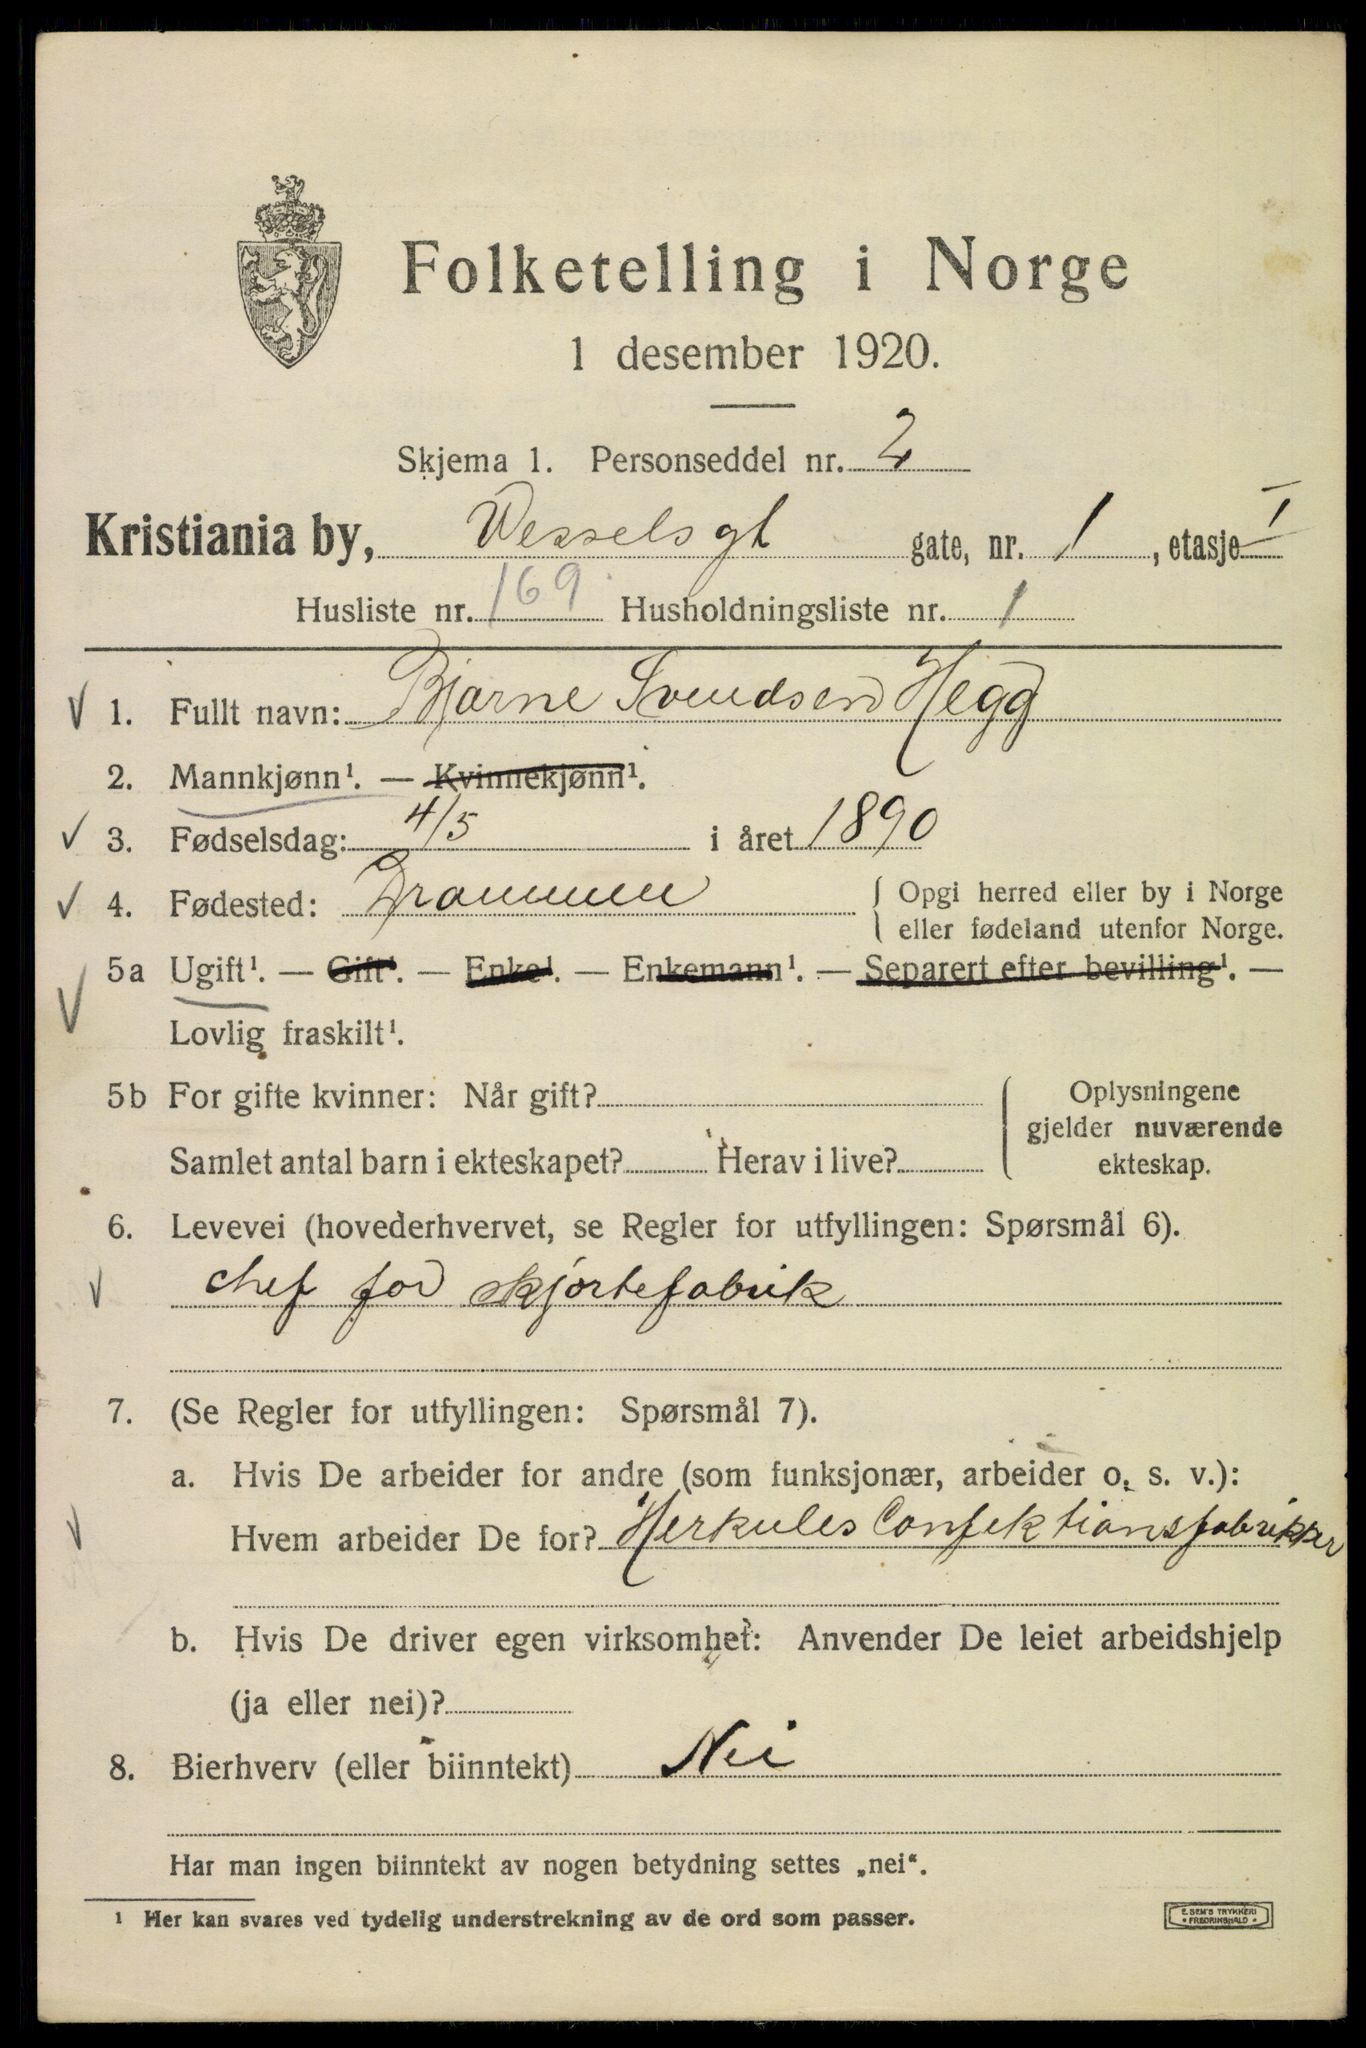 Folketelling i Norge
1 desember 1920.
Skjema 1. Personseddel nr. 2
Kristiania by, Wesselsgt gate, nr. 1, etasje I
Husliste nr. 169 Husholdningsliste nr. 1
1. Fullt navn: Bjarne Svendsen Hegg
2. Mannkjønn¹. — Kvinnekjønn¹.
3. Fødselsdag: 4/5 i året 1890
4. Fødested: Drammen { Opgi herred eller by i Norge
eller fødeland utenfor Norge.
5a Ugift¹. — Gift¹. — Enke¹. — Enkemann¹. — Separert efter bevilling¹. —
Lovlig fraskilt¹.
5b For gifte kvinner: Når gift? Oplysningene
gjelder nuværende
Samlet antal barn i ekteskapet? Herav i live? ekteskap.
6. Levevei (hovederhvervet, se Regler for utfyllingen: Spørsmål 6).
chef for skjortefabrik
7. (Se Regler for utfyllingen: Spørsmål 7).
a. Hvis De arbeider for andre (som funksjonær, arbeider o. s. v.):
Hvem arbeider De for? Herkules Confektionsfabrikker
b. Hvis De driver egen virksomhet: Anvender De leiet arbeidshjelp
(ja eller nei)?
8. Bierhverv (eller biinntekt) Nei
Har man ingen biinntekt av nogen betydning settes „nei“.
¹ Her kan svares ved tydelig understrekning av de ord som passer.
E. SEM'S TRYKKERI
• FREDRIKSHALD •